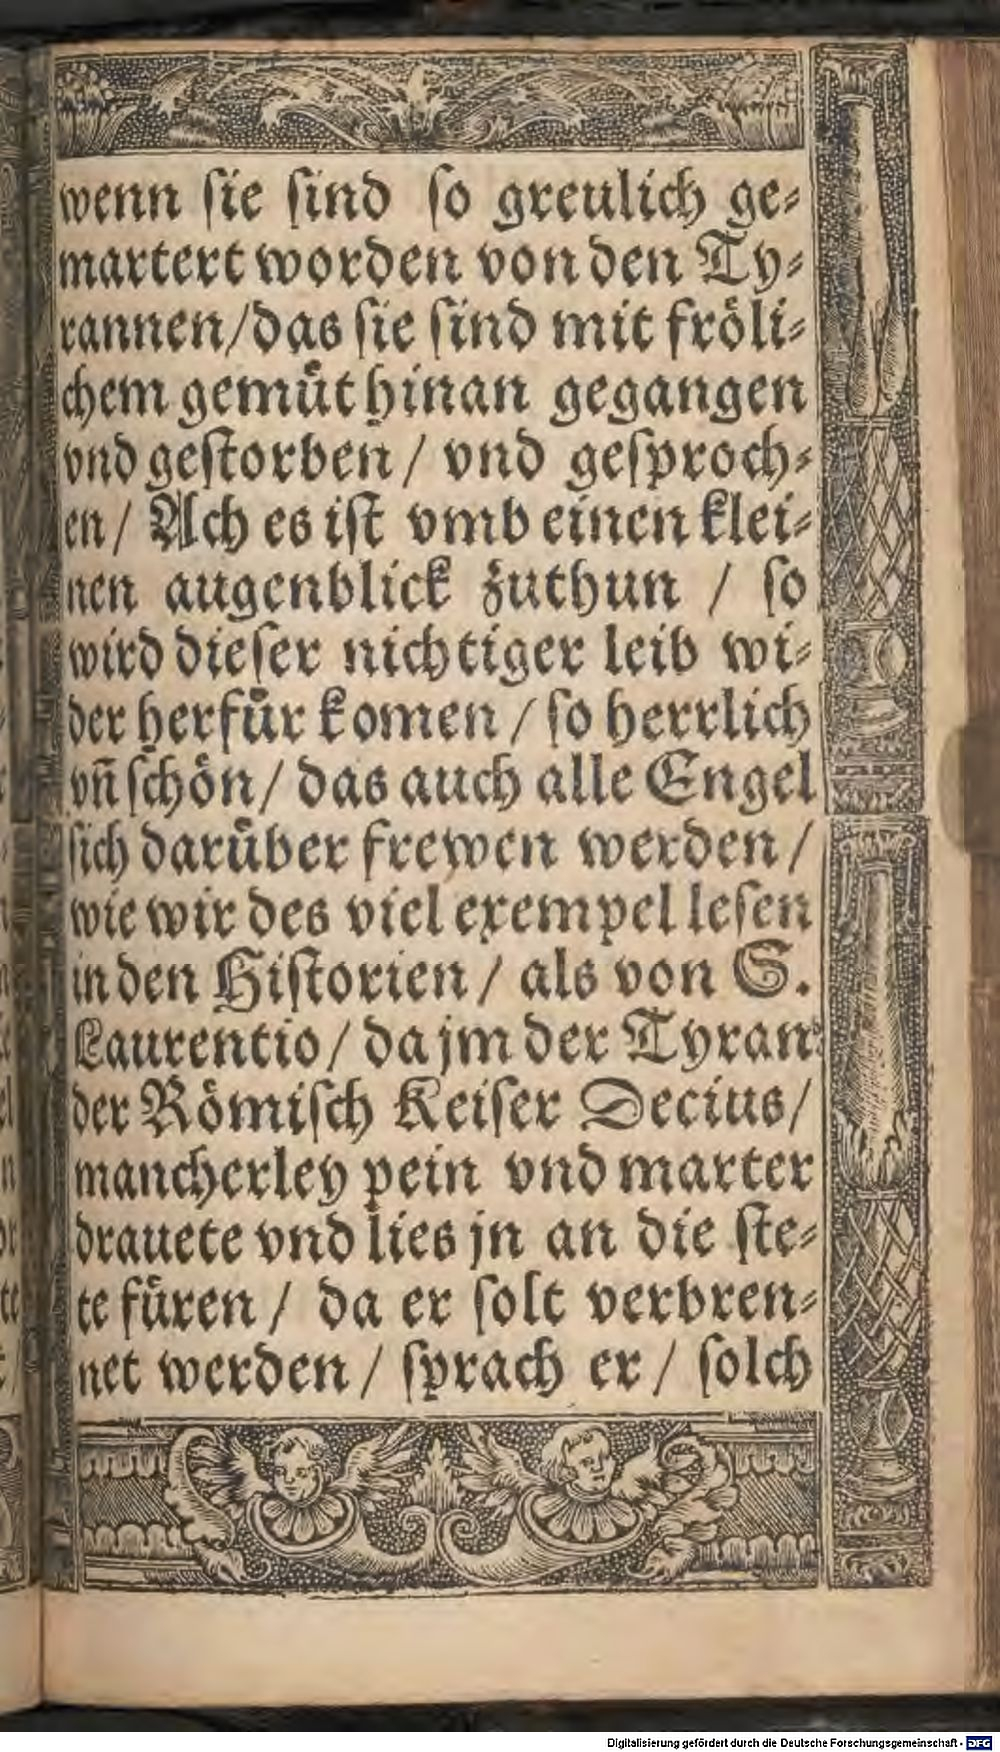 wenn ſie ſind ſo greulich ge⸗
martert worden von den Ty⸗
rannen/das ſie ſind mit froͤli⸗
chem gemuͤt hinan gegangen
vnd geſtorben / vnd geſproch⸗
en/ Ach es iſt vmb einen klei⸗
nen augenblick zuthun / ſo
wird dieſer nichtiger leib wi⸗
der herfuͤr komen / ſo herrlich
vn̄ ſchoͤn/ das auch alle Engel
ſich daruͤber frewen werden /
wie wir des viel exempel leſen
in den Hiſtorien / als von S.
Laurentio/ da jm der Tyran
der Roͤmiſch Keiſer Decius/
mancherley pein vnd marter
drauete vnd lies jn an die ſte⸗
te fuͤren / da er ſolt verbren⸗
net werden / ſprach er / ſolch
Digitalisierung gefördert durch die Deutsche Forschungsgemeinschaft - DFG